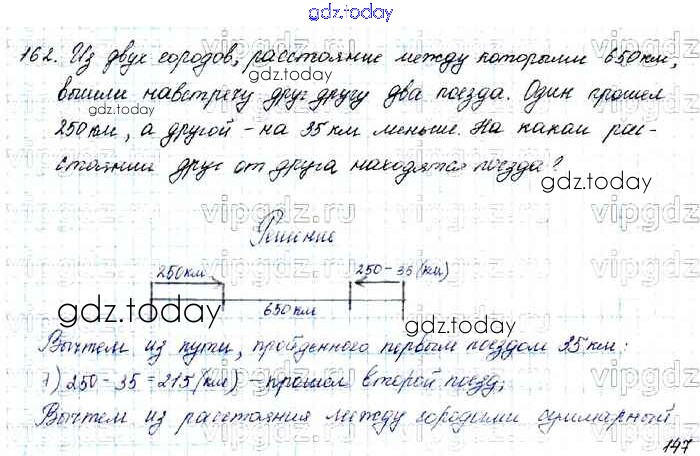 gdz.today
162. Из двух городов, расстояние между которыми 650км,
gdz.today
вышли навстречу друг другу два поезда. Один прошел
250км, а другой - на 35км меньше. На каком рас-
стоянии друг от друга находятся поезда?
gdz.today
vipgdz.ru vipgdz
Решение
250км 250-35(км)
650км
gdz.today
Вычтем из пути, пройденного первым поездом 35км:
1) 250-35=215(км) - прошел второй поезд;
Вычтем из расстояния между городами суммарный
147